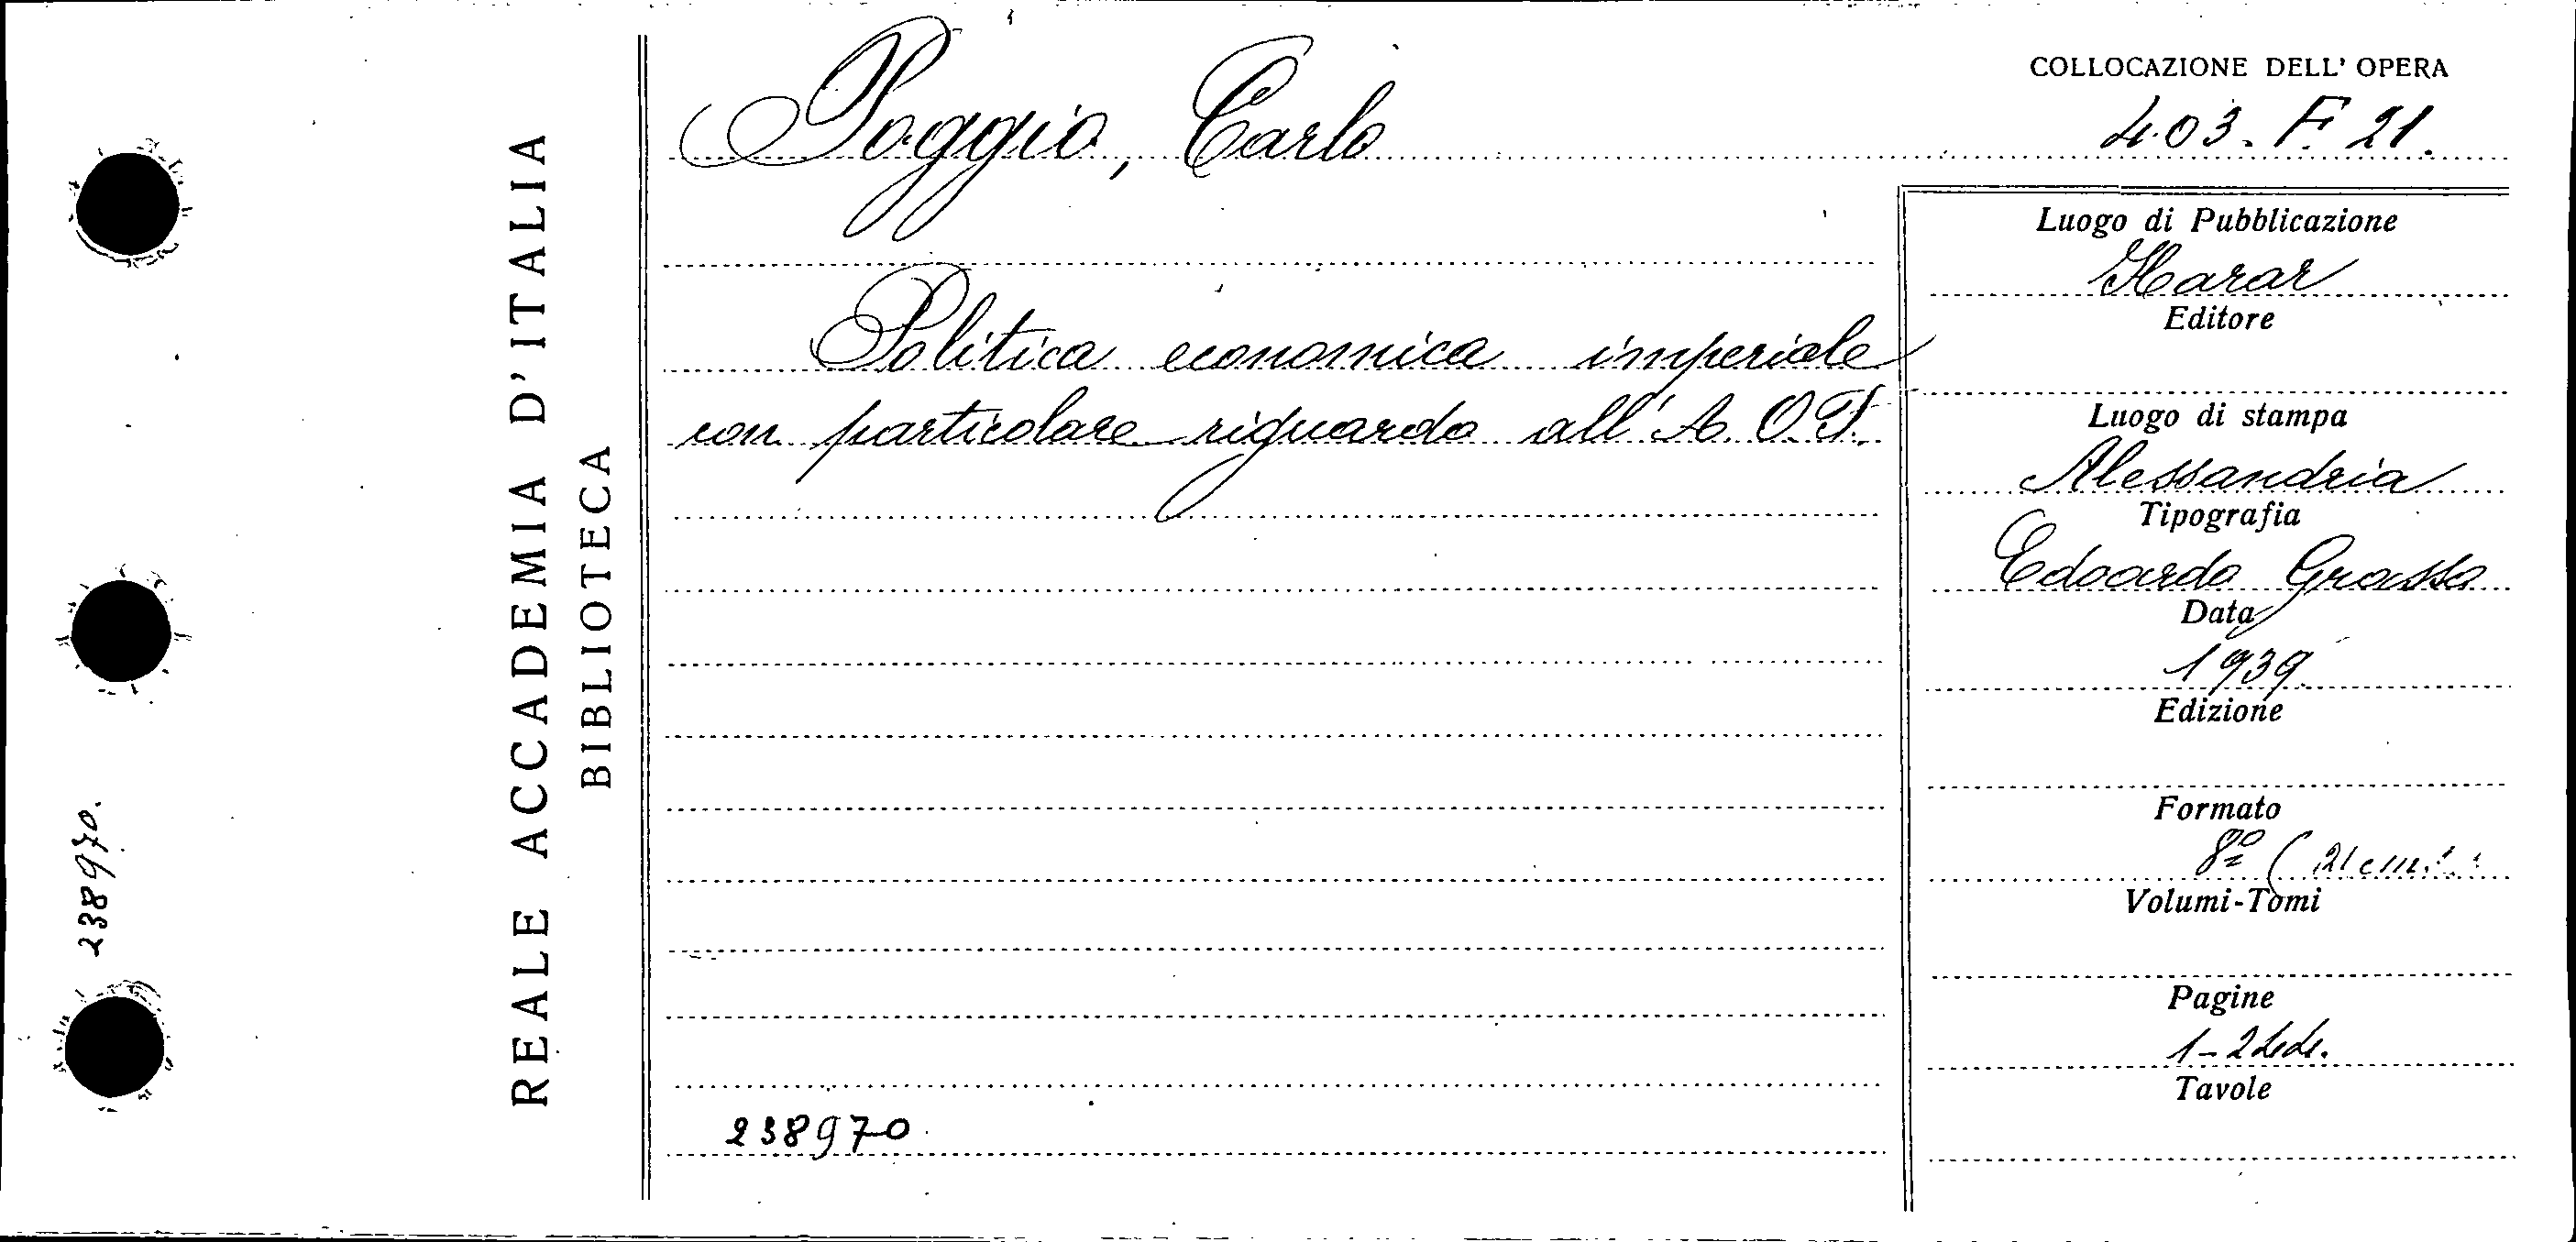 238970.
REALE ACCADEMIA D'ITALIA
BIBLIOTECA
Poggio, Carlo
Politica economica imperiale
con particolare riguardo all'A. O. I.
238970.
COLLOCAZIONE DELL' OPERA
403. F. 21.
Luogo di Pubblicazione
Harar
Editore
Luogo di stampa
Alessandria
Tipografia
Edoardo Grasso
Data
1939.
Edizione
Formato
8º (21 cm.)
Volumi-Tomi
Pagine
1-244.
Tavole